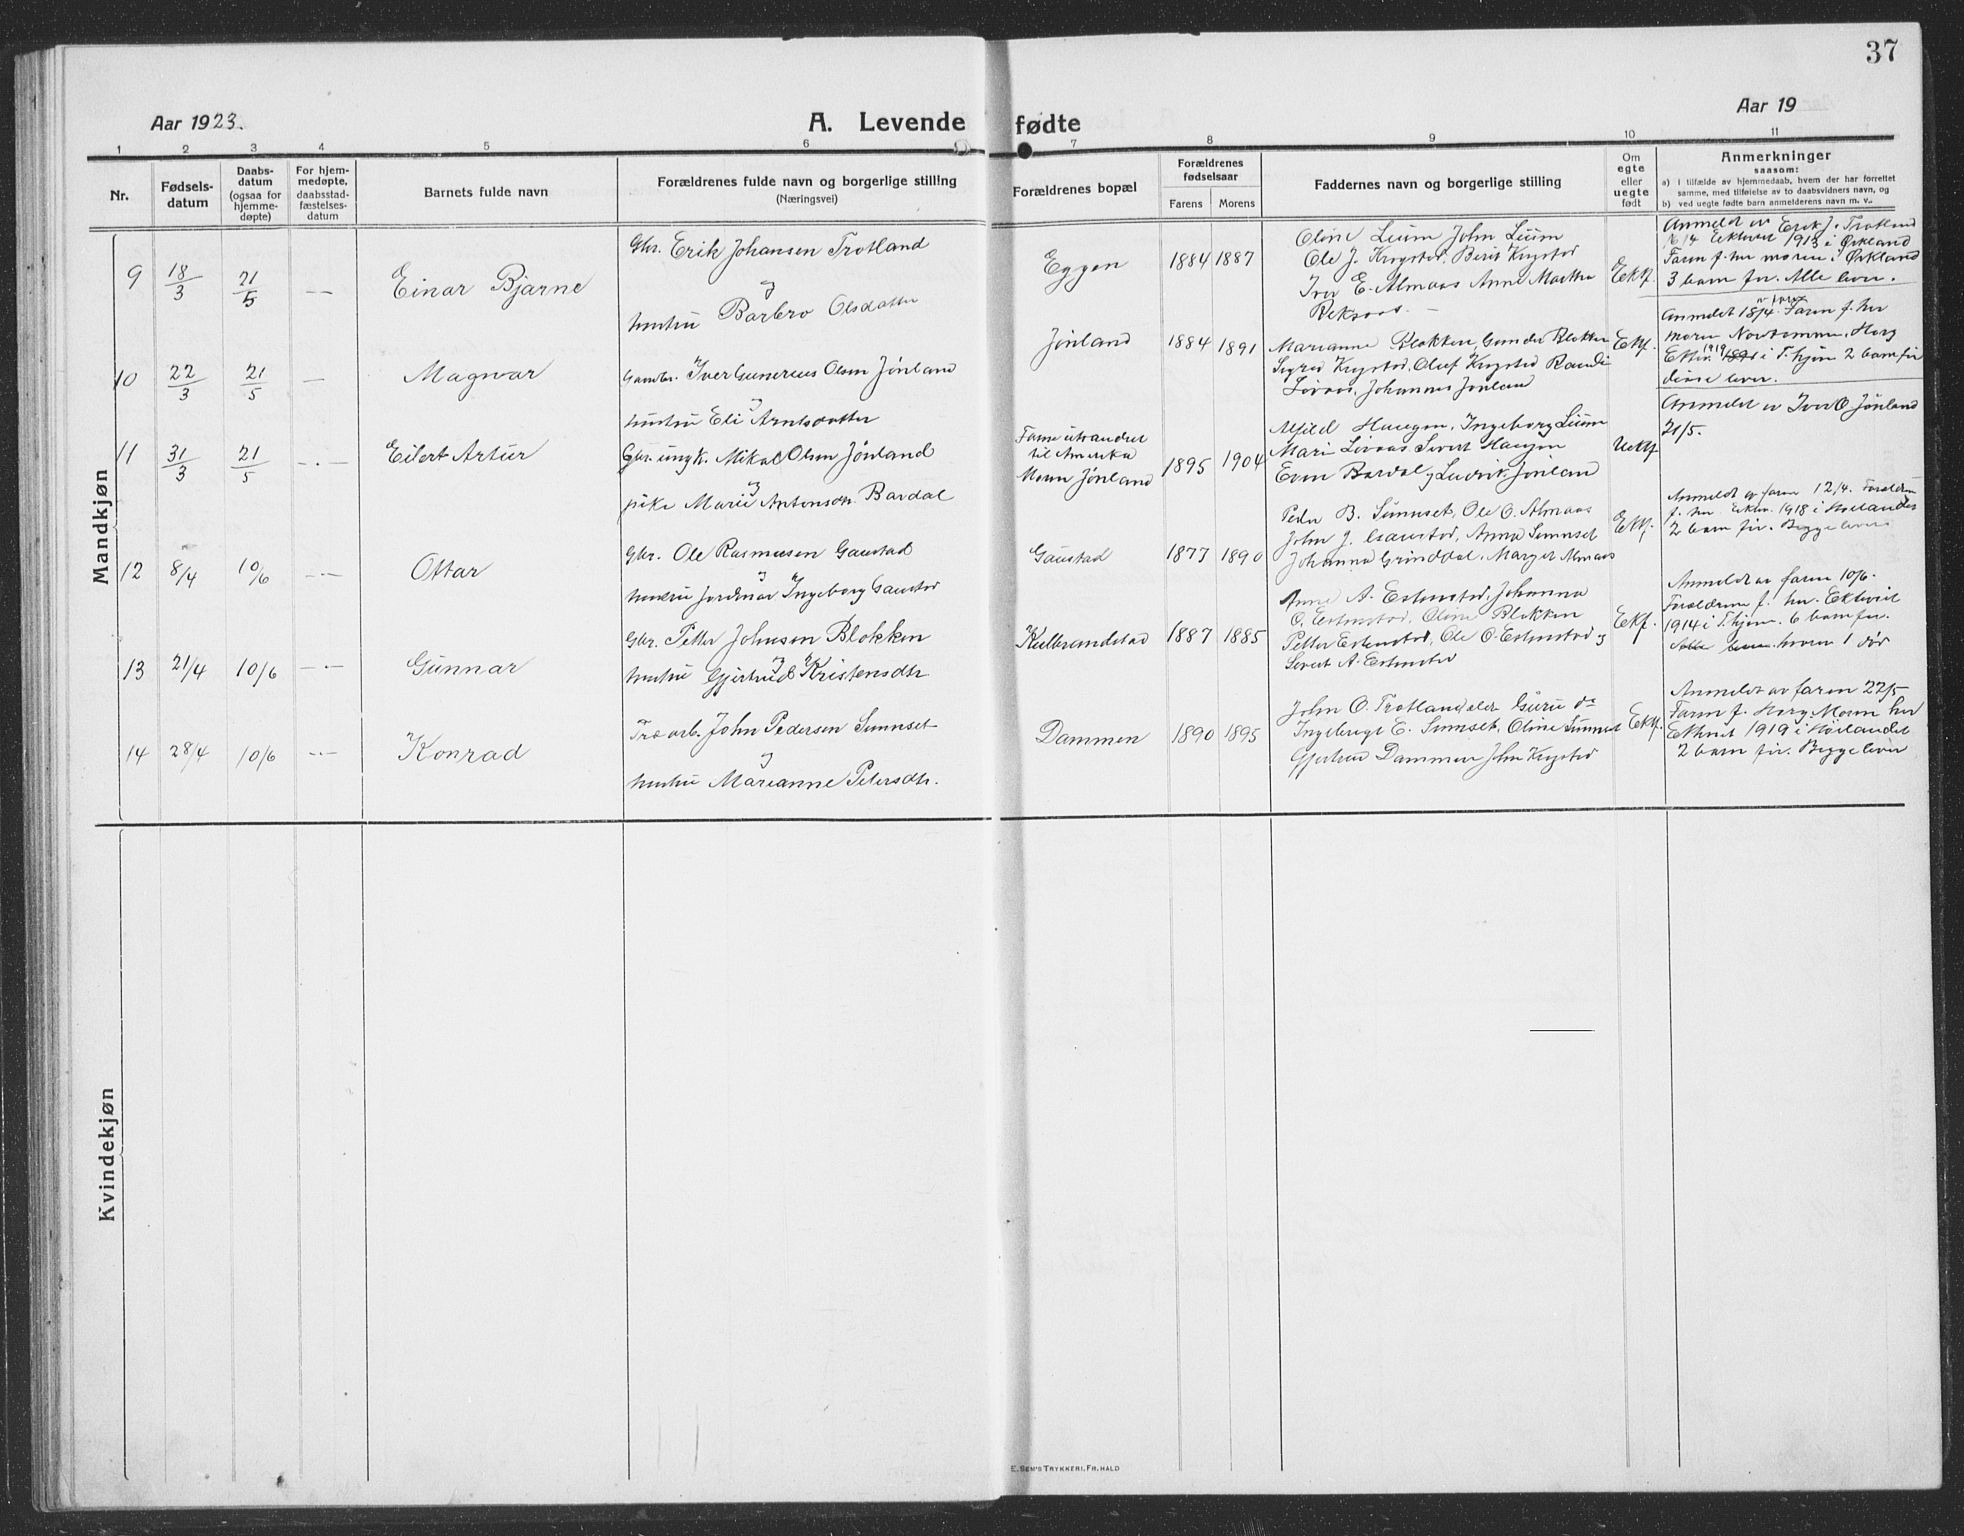 37
Aar 1923.
A. Levende fødte
Aar 19
1 2 3 4 5 6 7 8 9 10 11
Nr.
Fødsels-
datum
Daabs-
datum
(ogsaa for
hjemme-
døpte)
For hjem-
medøpte,
daabsstad-
fæstelses-
datum
Barnets fulde navn
Forældrenes fulde navn og borgerlige stilling
(Næringsvei)
Forældrenes bopæl
Forældrenes
fødselsaar
Farens Morens
Faddernes navn og borgerlige stilling
Om
egte
eller
uegte
født
Anmerkninger
saasom:
a) I tilfælde av hjemmedaab, hvem der har forrettet
samme, med tilføielse av to daabsvidners navn, og
b) ved uegte fødte barn anmelderens navn m. v.
Mandkjøn
9 18/3 21/5 — Einar Bjarne
Gbr. Erik Johansen Trotland
og
hustru Barbro Olsdatter
Eggen 1884 1887
Oline Leum John Leum
Ole J. Krogstad, Berit Krogstad
Iver E. Almaas Anne Martha
Reksaas. —
Ektf.
Anmeldt av Erik J. Trotland
Ektevict 1913 i Ørkland
Faren f. her moren i Ørkland
3 barn før. Alle lever.
10 22/3 21/5 — Magnar
Gaardbr. Iver Gunerius Olsen Jønland
og
hustru Eli Arntsdatter
Jønland 1884 1891
Marianne Blokken, Gunder Blokken
Sigrid Krogstad, Oluf Krogstad Randi
Løvaas, Johannes Jønland
Ektf.
Anmeldt 18/4 av faren Faren f. her
moren Horg
1919 i S.hjøm 2 barn før
disse lever.
11 31/3 21/5 —·— Eilert Artur
Gbr. ungk. Mikal Olsen Jønland
og
pike Marie Antonsdtr. Bardal
Faren utvandret
til Amerika
Moren Jønland 1895 1904
Alfild Haugen, Ingeborg Leum
Mari Løvaas Sivert Haugen
Even Bardal og Ludvik Jønland
Uektf
Anmeldt av Iver O. Jønland
21/5.
12 8/4 10/6 —·— Ottar
Gbr. Ole Rasmussen Gaustad
og
hustru Jordmor Ingeborg Gaustad
Gaustad 1877 1890
Peder B. Sumset, Ole O. Almaas
John J. Gaustad, Anna Sumset
Johanna Grinddal, Marget Almaas
Ektf.
Anmeldt av faren 12/4. Forældrene
f. her Ektev. 1918 i Hølandet
2 barn før. Begge lever
13 21/4 10/6 —·— Gunnar
Gbr. Petter Johnsen Blokken
og
hustru Gjertrud Kristensdtr
Kulbrandstad 1887 1885
Anne A. Estenstad, Johanna
O. Estenstad, Oline Blokken
Petter Estenstad, Ole O. Estenstad og
Sivert A. Estenstad
Ektf.
Anmeldt av faren 10/6.
Forældrene f. her. Ektevict
1914 i S.hjøm. 6 barn før.
Alle lever hvorav 1 død
14 28/4 10/6 —·— Konrad
Træarb. John Pedersen Sumset
og
hustru Marianne Petersdtr.
Dammen 1890 1895
John O. Trotland eller Guru do
Ingebrigt E. Sumset, Oline Sumset
Gjertrud Dammen John Krogstad
Ektf.
Anmeldt av faren 22/5
Faren f. Horg Moren her
Ektevict 1919 i Hølandet
2 barn før. Begge lever
Kvindekjøn
E. Sem's Trykkeri, Fr.hald